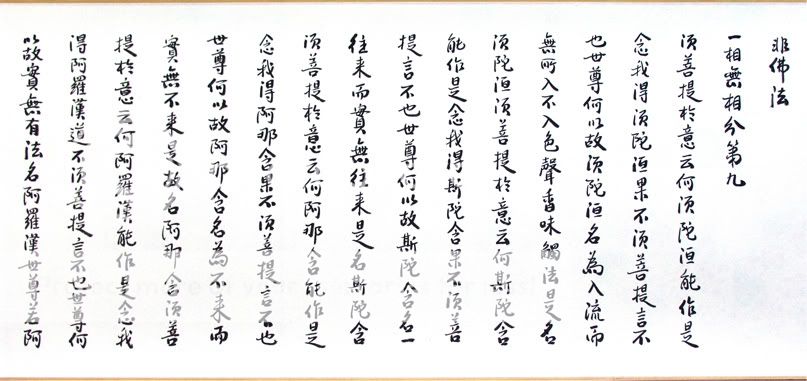 非佛法
一相無相分第九
須菩提於意云何須陀洹能作是
念我得須陀洹果不須菩提言不
也世尊何以故須陀洹名為入流而
無所入不入色聲香味觸法是名
須陀洹須菩提於意云何斯陀含
能作是念我得斯陀含果不須菩
提言不也世尊何以故斯陀含名一
往来而實無往来是名斯陀含
須菩提於意云何阿那含能作是
念我得阿那含果不須菩提言不也
世尊何以故阿那含名為不来而
實無不来是故名阿那含須菩
提於意云何阿羅漢能作是念我
得阿羅漢道不須菩提言不也世尊何
以故實無有法名阿羅漢世尊若阿